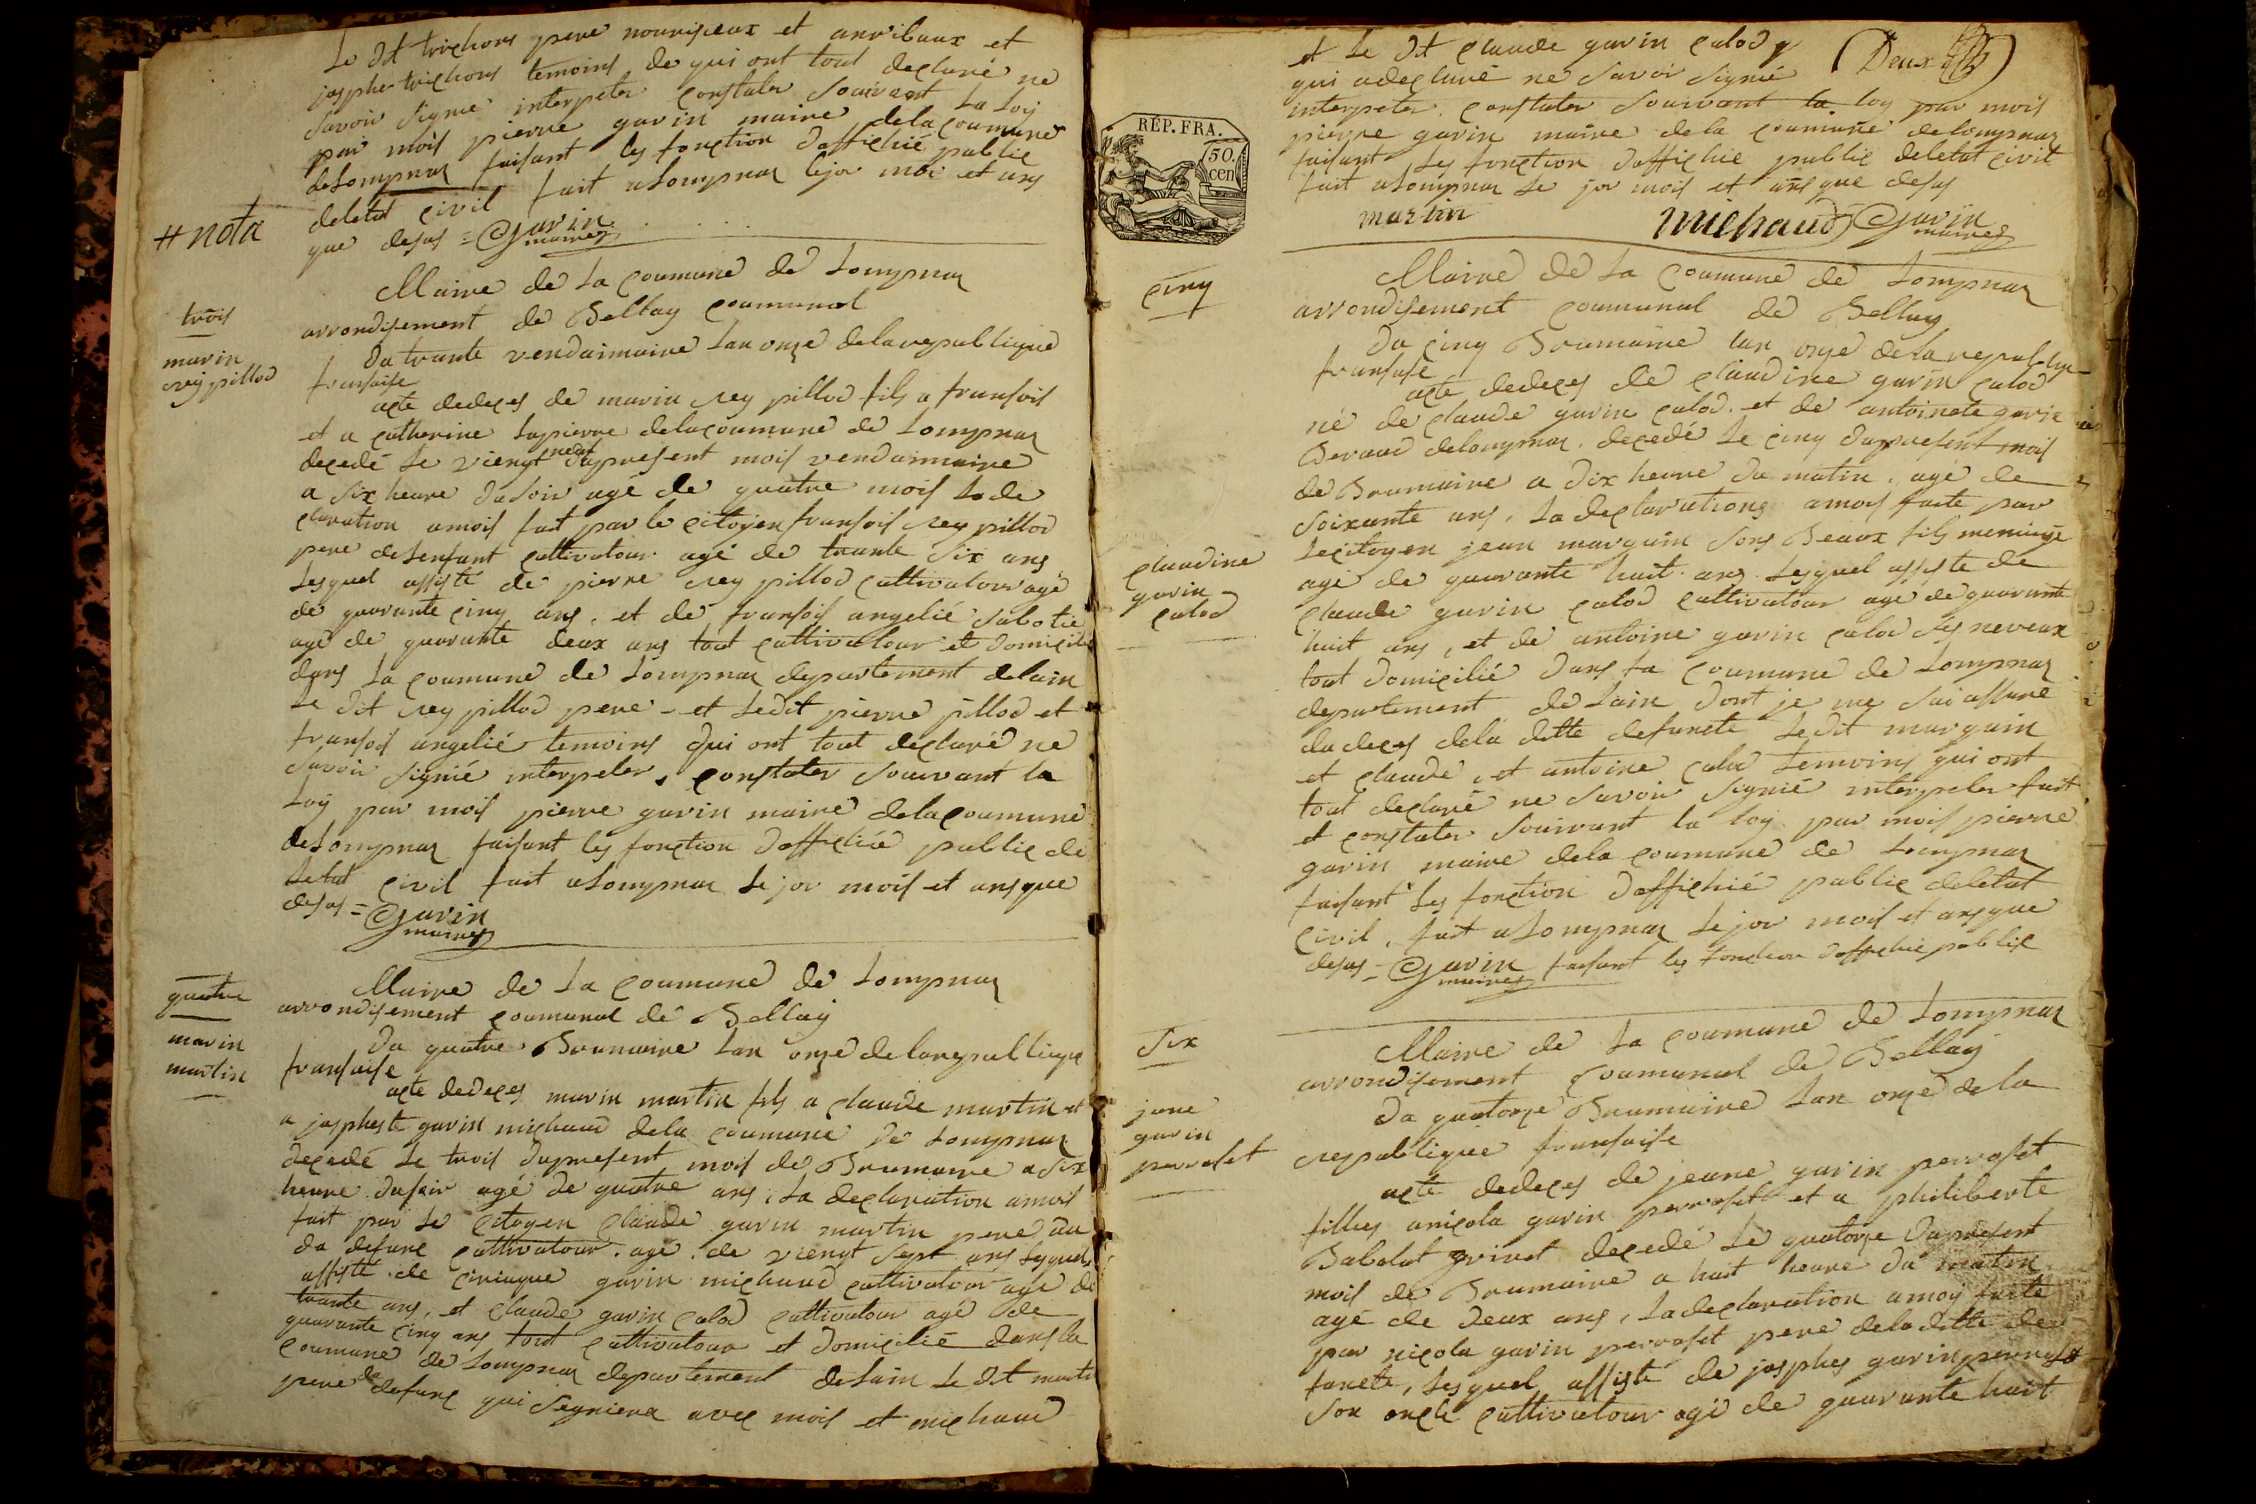 Le dit trichons pere nourisieux et anribaux et
josphe trichons temoins de qui ont tout declaré ne
savoir signié interpeler constater souivant la loy
par mois pierre gavin maire de la coumune
de Lompnaz faisant les fonction daffichié public
deletat civil fait a Lompnaz le jor moi et ans
que desus = Gavin
maire
# nota
Maire de La Coumune de Lompnaz
arrondisement de Bellay coumunal
trois
marin
rey pillod
Du trante vendaimaire Lan onze de la republique
fransaise
acte dedeces de marin rey pillod fils a fransois
et a catherine Lapierre delacoumune de Lompnaz
decedé le viengt neuf dupresent mois vendaimaire
a six heure dusoir agé de quatre mois La de
claration amois fait par le citoyen fransois rey pillod
pere delenfant cultivatour agé de trante six ans
Lesquel assisté de pierre rey pillod cultivatour agé
de quarante cinq ans, et de fransois angelié sabotie
agé de quarante deux ans tout cultivatour et domicilié
dans La coumune de Lompnaz departement delain
Le dit rey pillod pere - et Ledit pierre pillod et
fransois angelié temoins qui ont tout declaré ne
savoir signié interpeler, constater souivant la
Loy par mois pierre gavin maire delacoumune
deLompnaz faisant les fonction daffichié public de
Letat civil fait a Lompnaz Le jor mois et ans que
desus = Gavin
maire
Maire de La Coumune de Lompnaz
arrondisement coumunal de Bellay
quatre
marin
martin
Du quatre Brumaire Lan onze delarepublique
fransaise
acte dedeces marin martin fils a claude martin et
a jospheste gavin michaud dela coumune de Lompnaz
decedé Le trois dupresent mois de Brumaire a six
heure dusoir agé de quatre ans, La declaration amois
fait par Le citoyen claude gavin martin pere au
du defunc cultivatour agé de viengt sept ans Lesquel
assisté de ciriaque gavin michaud cultivatour agé de
trante ans, et claude gavin calod cultivatour agé de
quarante cinq ans tout cultivatour et domicilié dans la
coumune de Lompnaz departement deLain Le dit martin
pere du defunc qui signiera avec mois et michaud
et Le dit claude gavin calod
qui a declaré ne savoir signié (Deux)
interpeter constater souivant la loy par mois
pierre gavin maire dela coumune delompnaz
faisant Les fonction daffichie public deletat civil
fait aLompnaz Le jor mois et ans que desus
martin michaud Gavin
maire
RÉP. FRA.
50.
cen
Maire de La Coumune de Lompnaz
cinq
arrondisement coumunal de Bellay
Du cinq Brumaire lan onze dela republique
fransaise
acte dedeces de claudine gavin calod
né de claude gavin calod et de antoinete gavin
Beraud delompnaz decedé Le cinq dupresent mois
de Brumaire a dix heure du matin, agé de
soixante ans, La declarations amois faite par
Lecitoyen jean marguin sons Beaux fils
claudine
gavin
calod
agé de quarante huit ans Lesquel assiste de
claude gavin calod cultivatour agé de quarante
huit ans, et de antoine gavin calod ses neveux
tout domicilié dans La coumune de Lompnaz
departement de Lain dont je me sui assuré
du deces dela ditte defuncte Ledit marguin
et claude, et antoine calod temoins qui ont
tout declaré ne savoir signié interpeler fait
et constater souivant la loy par mois pierre
gavin maire dela coumune de Lompnaz
faisant Les fonction daffichié public deletat
civil, fait a Lompnaz Le jor mois et ans que
desus = Gavin faisant les fonction daffichie public
maire
Maire de La Coumune de Lompnaz
six
arrondisement Coumunal de Bellay
Du quatorze Brumaire Lan onze dela
republique fransaise
jane
gavin
perroset
acte dedeces de jeane gavin perroset
filles anicola gavin perroset et a philiberte
Babolat grinet decedé Le quatorze dupresent
mois de Brumaire a huit heure du matin
agé de deux ans, La declaration amoy faite
par nicola gavin perroset pere deladitte de
functe, Lesquel assisté de josphes gavin perroset
son oncle cultivatour agé de quarante huit